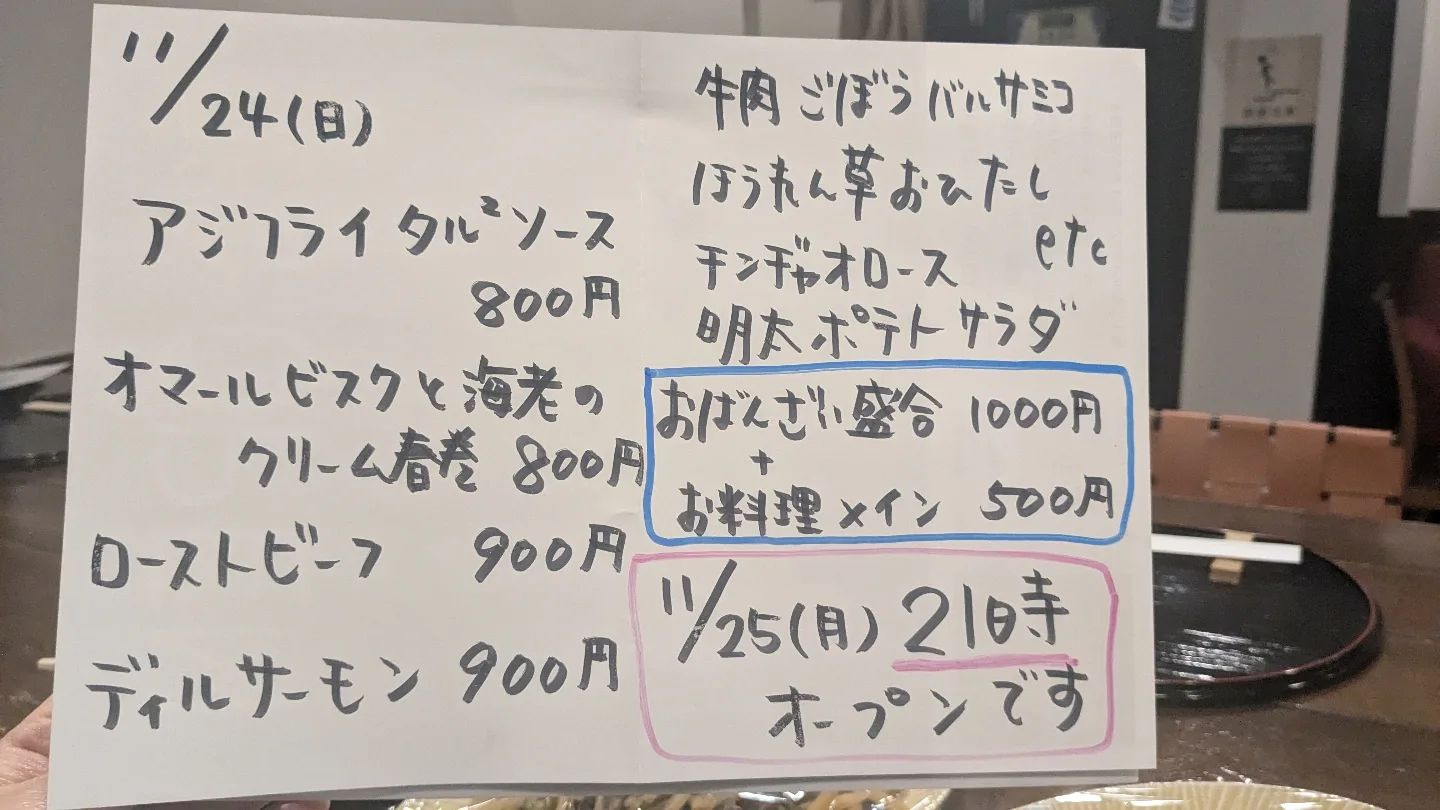 11/24(日)
アジフライタル²ソース
800円
オマールビスクと海老の
クリーム春巻 800円
ローストビーフ 900円
ディルサーモン 900円
牛肉ごぼうバルサミコ
ほうれん草おひたし
etc
チンヂャオロース
明太ポテトサラダ
おばんざい盛合 1000円
+
お料理メイン 500円
11/25(月) 21時
オープンです